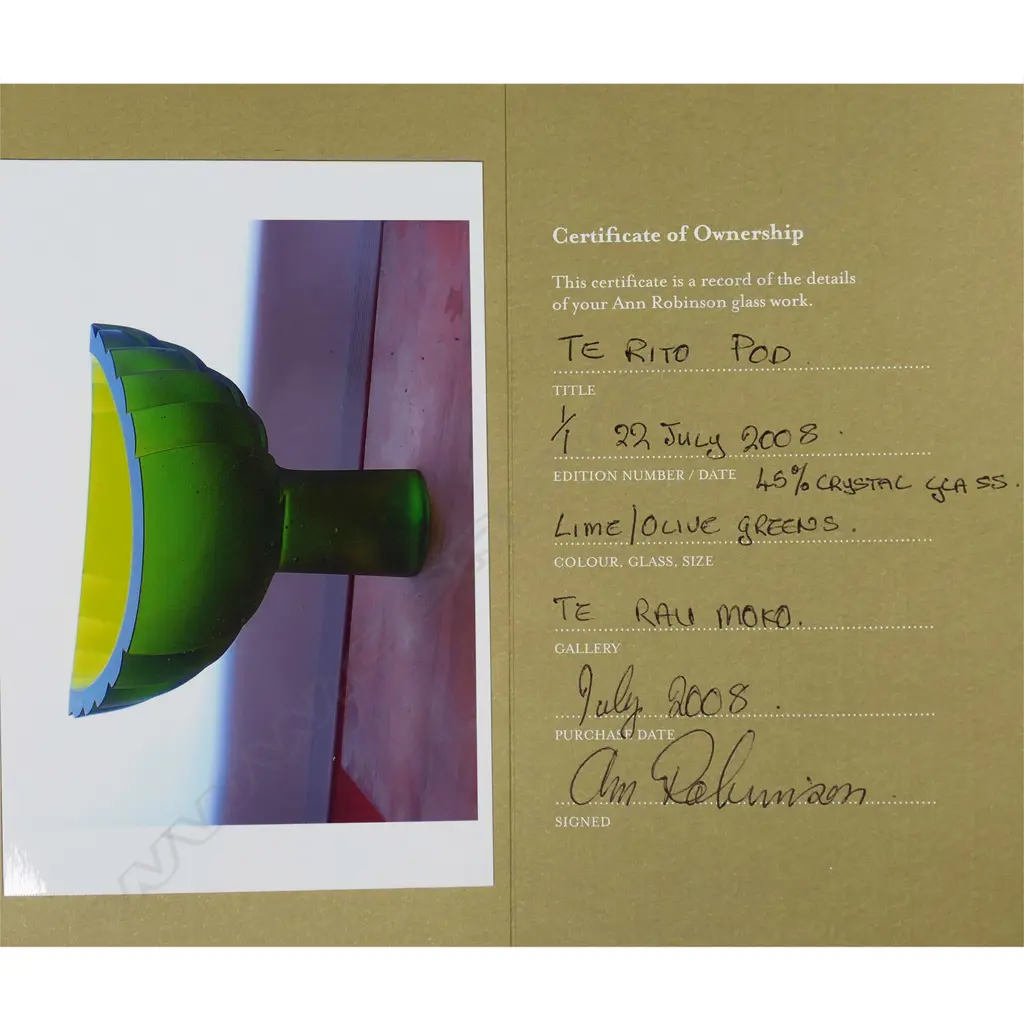 Certificate of Ownership
This certificate is a record of the details
of your Ann Robinson glass work.
TE RITO POD
TITLE
1/1 22 July 2008.
EDITION NUMBER / DATE
45% CRYSTAL GLASS.
LIME/OLIVE GREENS.
COLOUR, GLASS, SIZE
TE RAU MOKO.
GALLERY
July 2008.
PURCHASE DATE
Ann Robinson
SIGNED